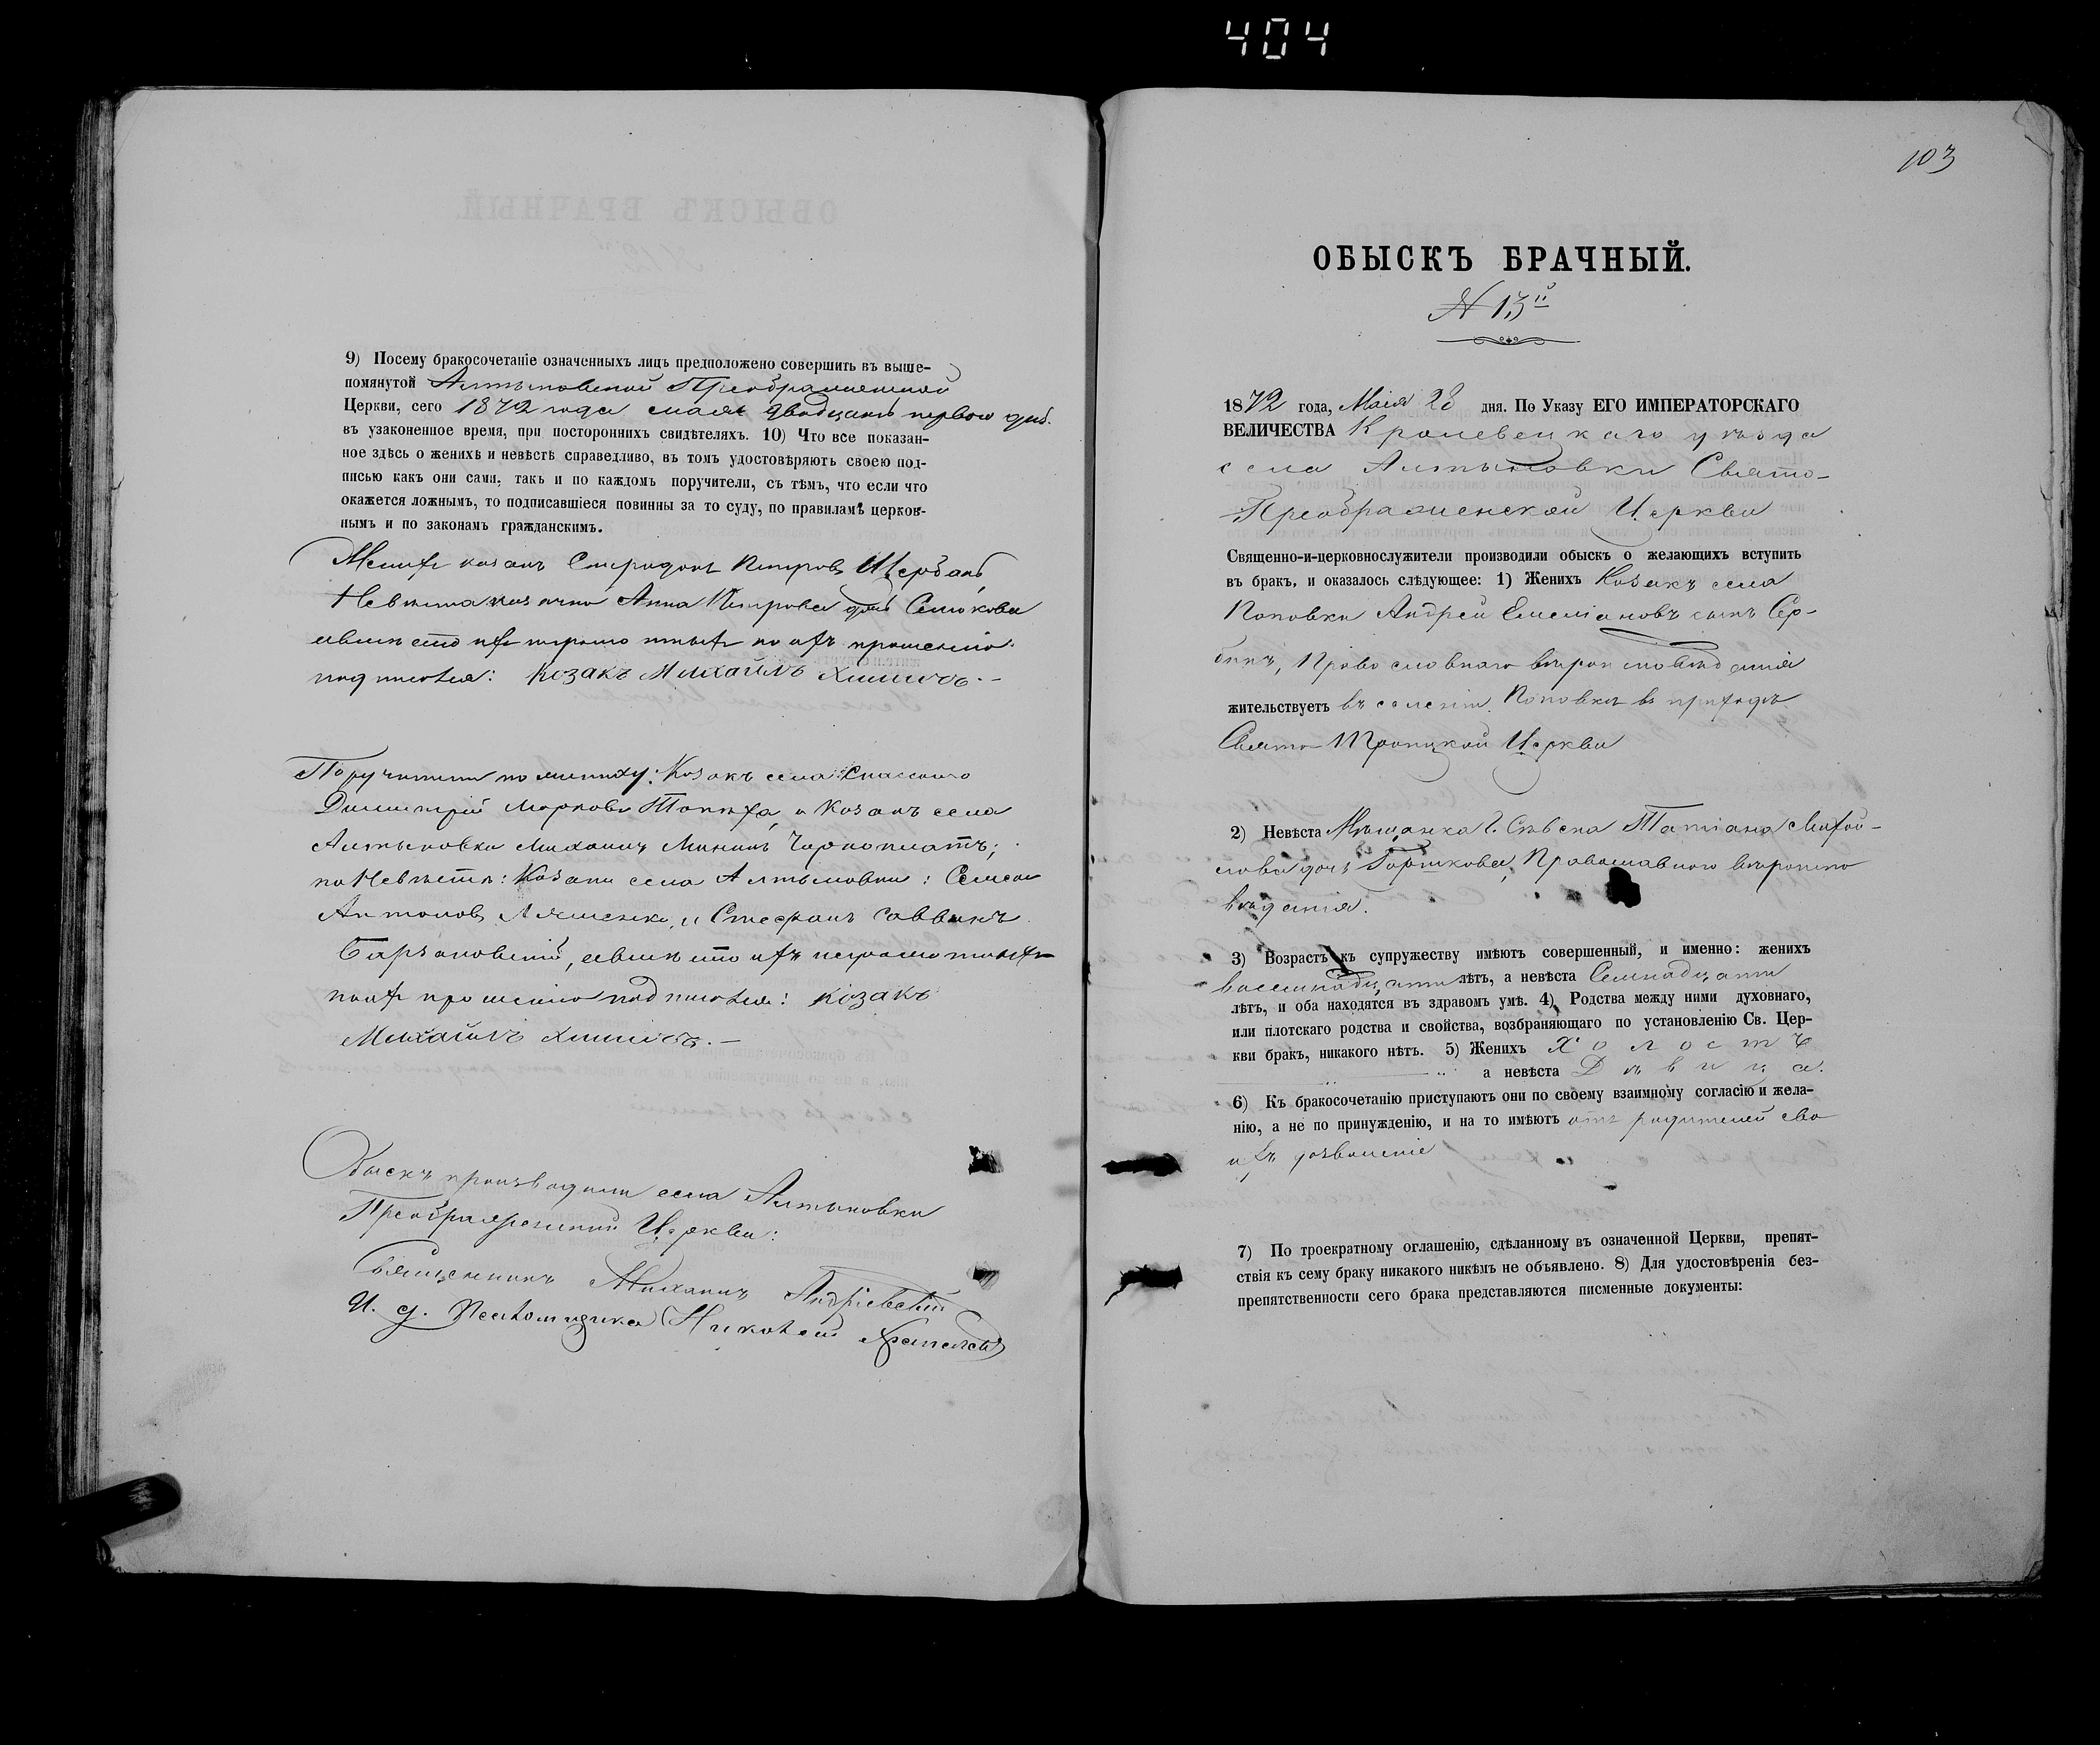 404
9) Посему бракосочетаніе означенныхъ лицъ предположено совершить въ выше-
помянутой Алтыновской Преображенской
Церкви, сего 1872 года маія двадцать первого дня.
въ узаконенное время, при постороннихъ свидѣтеляхъ. 10) Что все показан-
ное здѣсь о женихѣ и невѣстѣ справедливо, въ томъ удостовѣряютъ своею под-
писью какъ они сами, такъ и по каждомъ поручители, съ тѣмъ, что если что
окажется ложнымъ, то подписавшіеся повинны за то суду, по правиламъ церков-
нымъ и по законамъ гражданскимъ.
Женихъ козакъ Спиридонъ Петровъ Щербакъ
Невѣста козачка Анна Петрова дочь
а вмѣсто ихъ неграмотныхъ по ихъ прошенію
подписался: Козакъ Михаилъ
Поручители по жениху: Козакъ села Спасскаго
Димитрій Марковъ и Козакъ села
Алтыновки Михаилъ Мининъ
по Невѣстѣ: Козаки села Алтыновки: Семенъ
Антоновъ Ляшенко, и Стефанъ Саввинъ
а вмѣсто ихъ неграмотныхъ
по ихъ прошенію подписался: Козакъ
Михаилъ
Обыскъ производили села Алтыновки
Преображенской Церкви:
Священникъ Михаилъ Андріевскій
И. д. Псаломщика Николай
103
ОБЫСКЪ БРАЧНЫЙ.
N 13й
1872 года, Маія 28 дня. По Указу ЕГО ИМПЕРАТОРСКАГО
ВЕЛИЧЕСТВА Кролевецкаго уѣзда
села Алтыновки Свято-
Преображенской Церкви
Священно-и-церковнослужители производили обыскъ о желающихъ вступить
въ бракъ, и оказалось слѣдующее: 1) Женихъ Козакъ села
Поповки Андрей Емеліановъ сынъ Ер-
Православнаго вѣроисповѣданія
жительствуетъ въ селеніи Поповкѣ въ приходѣ
Свято Троицкой Церкви
2) Невѣста Мѣщанка Г. Сѣвска Татіана Михай-
лова дочь Горшкова, Православного вѣроиспо
вѣданія.
3) Возрастъ къ супружеству имѣютъ совершенный, и именно: женихъ
восемнадцати лѣтъ, а невѣста Семнадцати
лѣтъ, и оба находятся въ здравомъ умѣ. 4) Родства между ними духовнаго,
или плотскаго родства и свойства, возбраняющаго по установленію Св. Цер-
кви бракъ, никакого нѣтъ. 5) Женихъ Холостъ
а невѣста Дѣвица.
6) Къ бракосочетанію приступаютъ они по своему взаимному согласію и жела-
нію, а не по принужденію, и на то имѣютъ отъ родителей сво
ихъ дозволеніе
7) По троекратному оглашенію, сдѣланному въ означенной Церкви, препят-
ствія къ сему браку никакого никѣмъ не объявлено. 8) Для удостовѣренія без-
препятственности сего брака представляются писменные документы: